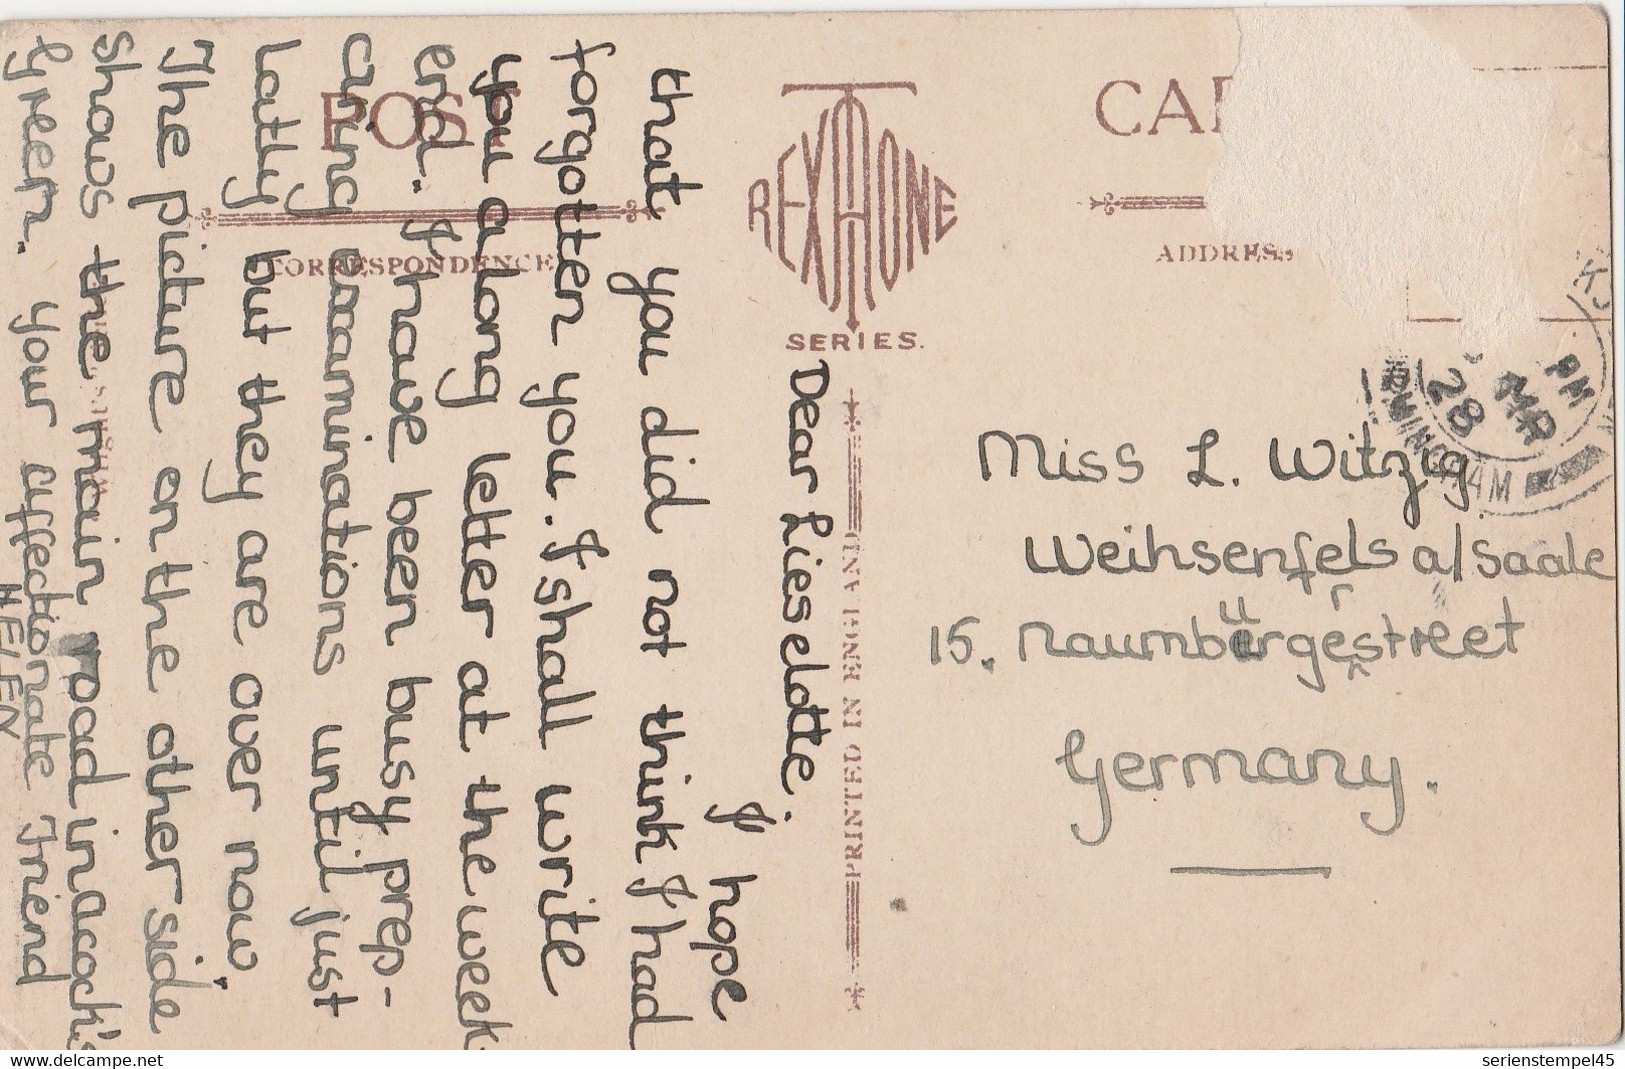 POST
CAR
REXATONE
SERIES.
CORRESPONDENCE
ADDRESS
PRINTED IN ENGLAND
Dear Lieselotte.
I hope
that you did not think I had
forgotten you. I shall write
you a long letter at the week-
end. I have been busy prep-
aring examinations until just
latly but they are over now.
The picture on the other side
shows the main road in acock's
Green. your affectionate Friend
HELEN
Miss L. Witzig
Weihsenfels a/Saale
15. Naumbürgerstreet
Germany.
PM
MR
28
BIRMINGHAM
www.delcampe.net
serienstempel45